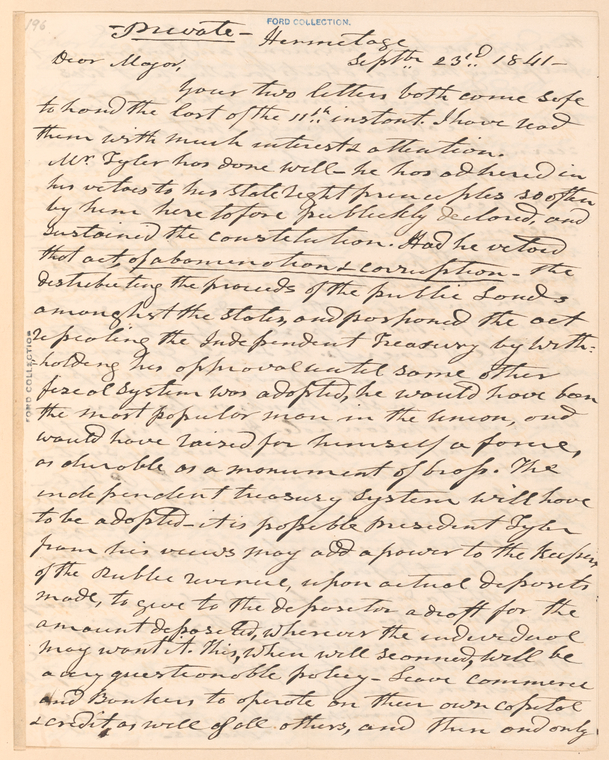 196
FORD COLLECTION.
-Private-
Hermitage
Septbr 23rd 1841-
Dear Major,
Your two letters both come safe
to hand the last of the 11th instant. I have read
them with much interest & attention.
Mr. Tyler has done well - he has adhered in
his vetoes to his State right principles so often
by him here tofore publickly declared, and
sustained the constitution. Had he vetoed
that act of abomenation & corruption - the
distributing the proceeds of the public Lands
amonghst the States, and posponed the act
repealing the Independent Treasury by with-
holding his approval until some other
fiscal system was adopted, he would have been
the most popular man in the union, and
would have raised for himself a fame,
as durable as a monument of brass. The
independent treasury system will have
to be adopted - it is possible President Tyler
from his views may add a power to the Keepers
of the Public revenue, upon actual deposits
made, to give to the depositor a draft for the
amount deposited, wherever the individual
may want it. this, when will scanned, will be
a very questionable policy - Leave commerce
and Bankers to operate on their own capital
& credit, as well as all others, and then and only
FORD COLLECTION